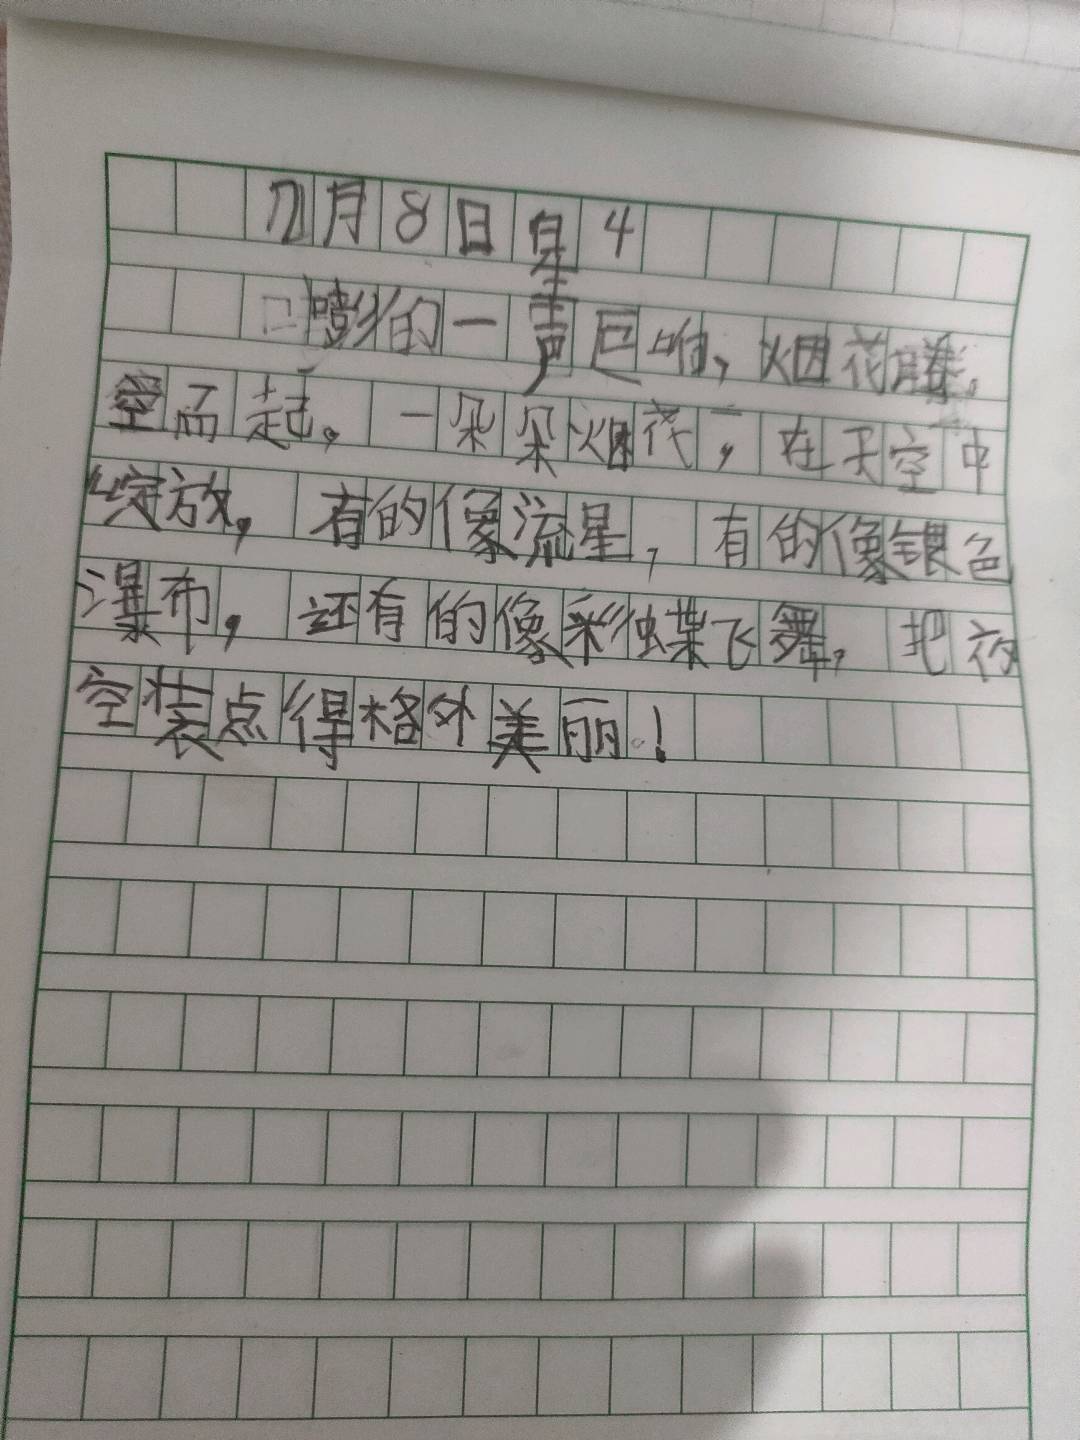 月8日星4
嘭的一声巨响,烟花腾
空而起。一朵朵烟花,在天空中
绽放,有的像流星,有的像银色
瀑布,还有的像彩蝶飞舞,把夜
空装点得格外美丽!